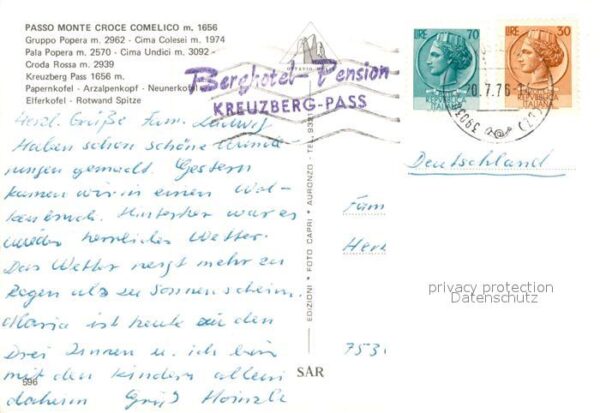 PASSO MONTE CROCE COMELICO m. 1656
Gruppo Popera m. 2962 - Cima Colesei m. 1974
Pala Popera m. 2570 - Cima Undici m. 3092 -
Croda Rossa m. 2939
Kreuzberg Pass 1656 m.
Papernkofel - Arzalpenkopf - Neunerkofel
Elferkofel - Rotwand Spitze
Berghotel-Pension
KREUZBERG-PASS
LIRE 70
LIRE 30
ITALIANA
ITALIANA
20.7.76-1
Herzl. Grüße Fam. Ludwig
Haben schon schöne Wande
rungen gemacht. Gestern
kamen wir in einen Wol-
kenbruch. Hinterher war es
wieder herrliches Wetter.
Das Wetter neigt mehr zu
Regen als zu Sonnenschein.
Maria ist heute zu den
Drei Zinnen u. ich bin
mit den Kindern allein
daheim Gruß Heinzle
596
EDIZIONI • FOTO CAPRI • AURONZO - TEL. 93
SAR
Deutschland
Fam
Her
753
privacy protection
Datenschutz